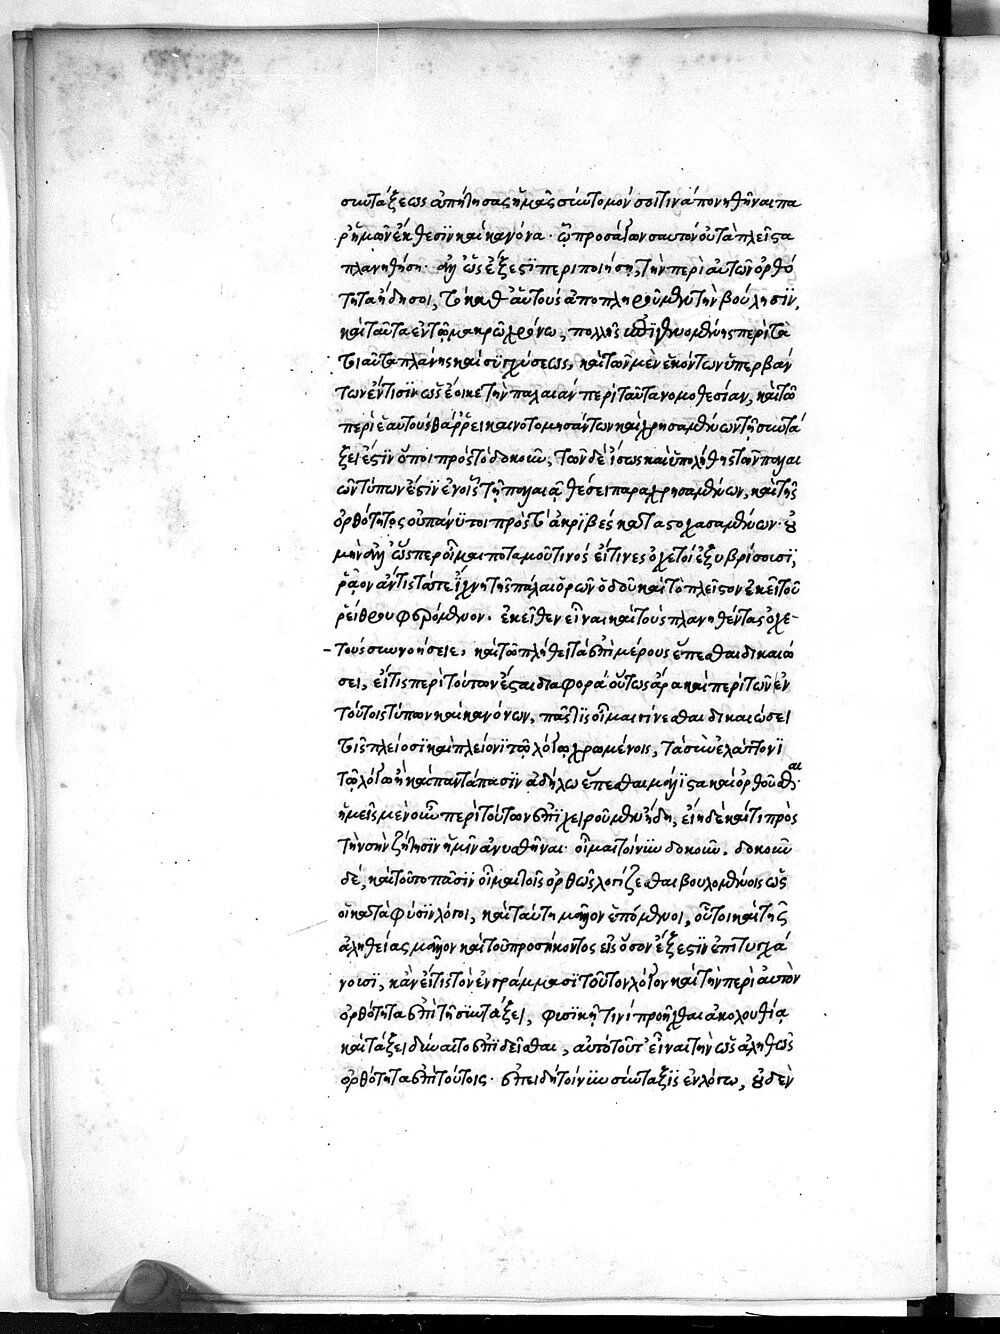 συντάξεως ἀπῄτησας ἡμᾶς σύντομόν σοι τινά πονηθῆναι πα
ρ' ἡμῶν ἔκθεσϊν καὶ κανόνα · ᾧ προσέχων σαυτὸν οὐ τὰ πλεῖστα
πλανηθήσῃ · ὡς ἔξεστϊ περιποιήσῃ, τὴν περὶ αὐτῶν ὀρθό
τητα ἤδη σοι, τὸ καθ' αὑτοὺς ἀποπληροῦμεν τὴν βούλησϊν,
καὶ ταῦτα ἐν τῷ μακρῷ χρόνῳ, πολλῆς γενομένης περὶ τὰ
τοιαῦτα πλάνης καὶ συγχύσεως, καὶ τῶν μὲν ἑκόντων ὑπερβάν
των ἔν τισϊν ὡς ἔοικε τὴν παλαιάν περὶ ταῦτα νομοθεσίαν, καὶ τῷ
περὶ ἑαυτοὺς θάρρει καινοτομησάντων καὶ χρησαμένων τῇ συντά
ξει ἔστϊν ὅποι πρὸς τὸ δοκοῦν, τῶν δὲ ἴσως καὶ ὑπολήψει τῶν παλαι
ῶν τύπων ἔστϊν ἐν οἷς τῇ παλαιᾷ θέσει παραχρησαμένων, καὶ τῆς
ὀρθότητος οὐ πάνϋ τοι πρὸς τὸ ἀκρϊβὲς καταστοχασαμένων · οὐ
μὴν ὥσπερ οἶμαι ποταμοῦ τινος εἴ τινες ὀχετοὶ ἐξυβρίσοισϊ,
ῥᾷον ἄν τις τά τε ἴχνη τῆς πάλαι ὁρῶν ὁδοῦ καὶ τὸ πλεῖστον ἐκεῖ τοῦ
ῥείθρου φερόμενον · ἐκεῖθεν εἶναι καὶ τοὺς πλανηθέντας ὀχε-
τοὺς συννοήσειε, καὶ τῷ πλήθει τὰ ἐπὶ μέρους ἕπεσθαι δικαιώ
σει, εἴ τις περὶ τούτων ἔσται διαφορά · οὕτως ἄρα καὶ περὶ τῶν ἐν
τούτοις τύπων καὶ κανόνων, πᾶς τϊς οἶμαι γίνεσθαι δικαιώσει
τοῖς πλείοσϊ καὶ πλείονϊ τῷ λόγῳ χρωμένοις, τὰ σὺν ἐλάττονϊ
τῷ λόγῳ ἢ καὶ παντάπασϊν ἀδήλῳ ἕπεσθαι μάλϊστα καὶ ὀρθοῦσθαι ·
ἡμεῖς μὲν οὖν περὶ τούτων ἐπϊχειροῦμεν ἤδη, εἴη δὲ καί τι πρὸς
τὴν σὴν ζήτησϊν ἡμῖν ἀνυσθῆναι · οἶμαι τοίνυν δοκοῦν. δοκοῦν
δέ, καὶ τοῦτο πᾶσϊν οἶμαι τοῖς ὀρθῶς λογίζεσθαι βουλομένοις ὡς
οἱ κατὰ φύσϊν λόγοι, καὶ ταύτῃ μᾶλλον ἑπόμενοι, οὗτοι καὶ τῆς
ἀληθείας μᾶλλον καὶ τοῦ προσήκοντος εἰς ὅσον ἔξεστϊν ἐπϊτυγχά
νοισϊ, κἂν εἴ τις τὸν ἐν γράμμασϊ τοῦτον λόγον καὶ τὴν περὶ αὐτὸν
ὀρθότητα ἐπὶ τῇ συντάξει, φυσικῇ τινὶ προῆχθαι ἀκολουθίᾳ
καὶ τάξει δύναιτο ἐπϊδεῖσθαι, αὐτὸ τοῦτ' εἶναι τὴν ὡς ἀληθῶς
ὀρθότητα ἐπὶ τούτοις · ἐπειδὴ τοίνυν σύνταξϊς ἐν λόγῳ, οὐδὲν